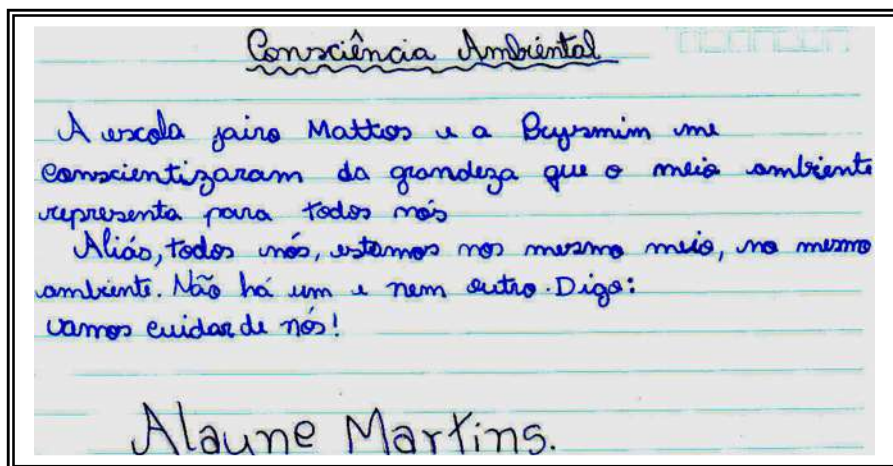 Consciência Ambiental
A escola jairo Mattos e a me
conscientizaram da grandeza que o meio ambiente
representa para todos nós
Aliás, todos nós, estamos nos mesmo meio, no mesmo
ambiente. Não há um e nem outro. Digo:
vamos cuidar de nós!
Alaune Martins.